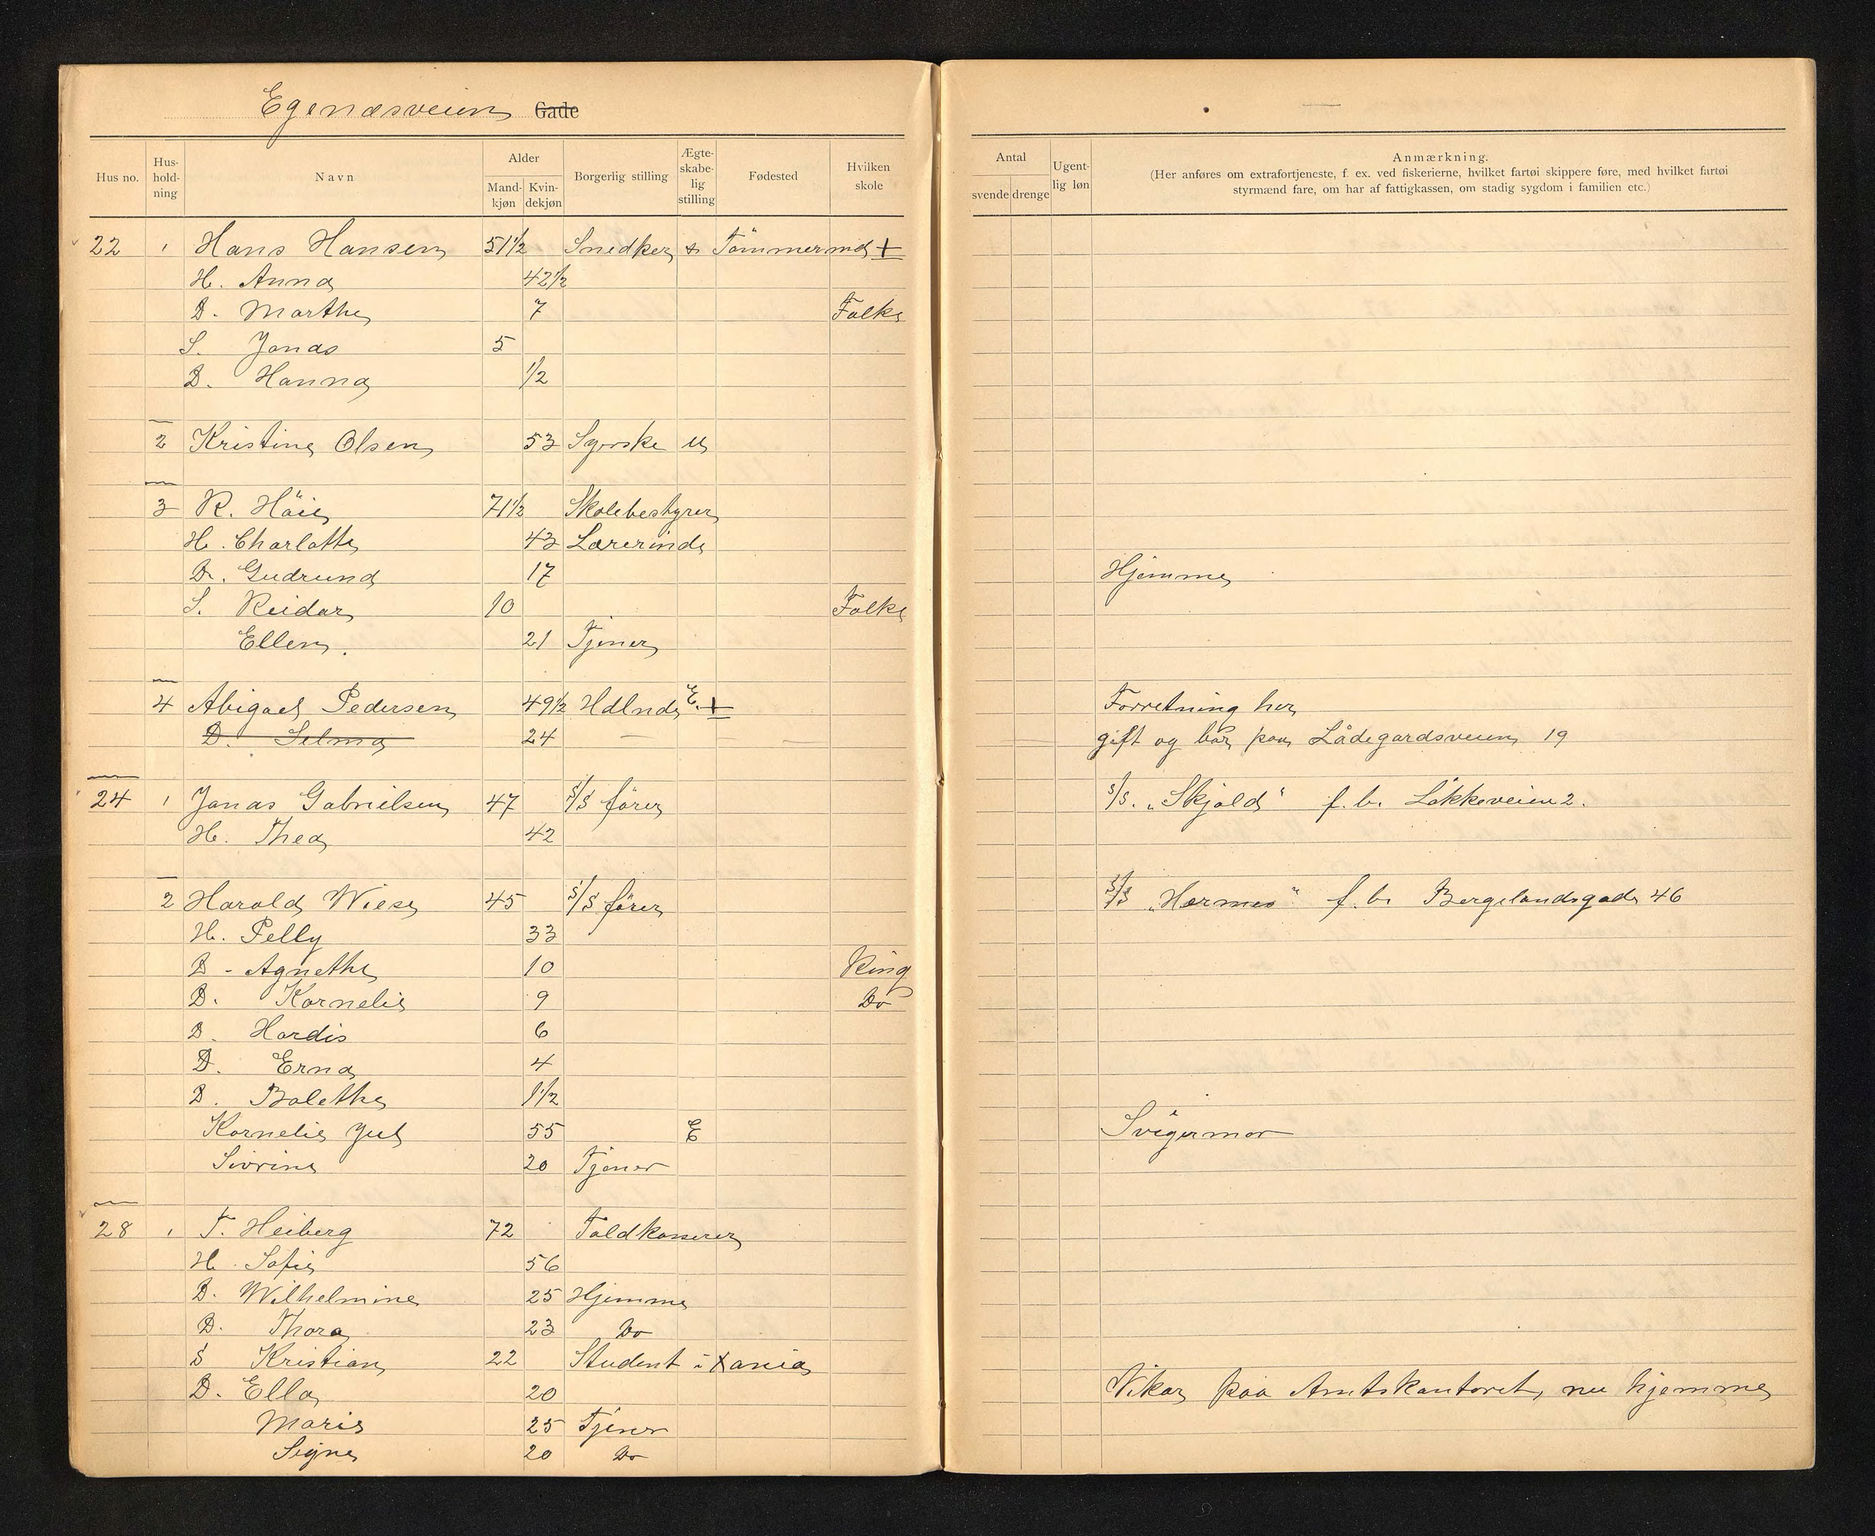 Egenæsveien Gade
Hus no. Hus-hold-ning Navn Alder Mand-kjøn Kvin-dekjøn Borgerlig stilling Ægte-skabe-lig stilling Fødested Hvilken skole
Antal svende drenge Ugent-lig løn Anmærkning.
(Her anføres om extrafortjeneste, f. ex. ved fiskerierne, hvilket fartøi skippere føre, med hvilket fartøi
styrmænd fare, om har af fattigkassen, om stadig sygdom i familien etc.)
22 1 Hans Hansen 51½ Snedker & Tömmermd +
H. Anna 42½
D. Marthe 7 Folke
S. Jonas 5
D. Hanna ½
2 Kristine Olsen 53 Syerske U
3 R. Höie 71½ Skolebestyrer
H. Charlotte 43 Lærerinde
D. Gudrund 17 Hjemme
S. Reidar 10 Folke
Ellen. 21 Tjener
4 Abigael Pedersen 49½ Hdlnde E. + Forretning her
D. Selma 24 — — gift og bor paa Lådegardsveien 19
24 1 Jonas Gabrielsen 47 S/S förer S/S. "Skjold" f. b. Lökkeveien 2.
H. Thea 42
2 Harald Wiese 45 S/S förer S/S "Hærmes" f. b. Bergelandsgade 46
H. Pelly 33
D - Agnethe 10 King
D. Kornelie 9 Do
D. Hardis 6
D. Erna 4
D. Bolethe 1½
Kornelie Jul 55 E Svigermor
Sivrine 20 Tjener
28 1 T. Heiberg 72 Toldkasserer
H. Sofie 56
D. Wilhelmine 25 Hjemme
D. Thora 23 Do
S Kristian 22 Student i Xania
D. Ella 20 Vikar paa Amtskontoret, nu hjemme
Marie 25 Tjener
Signe 20 Do